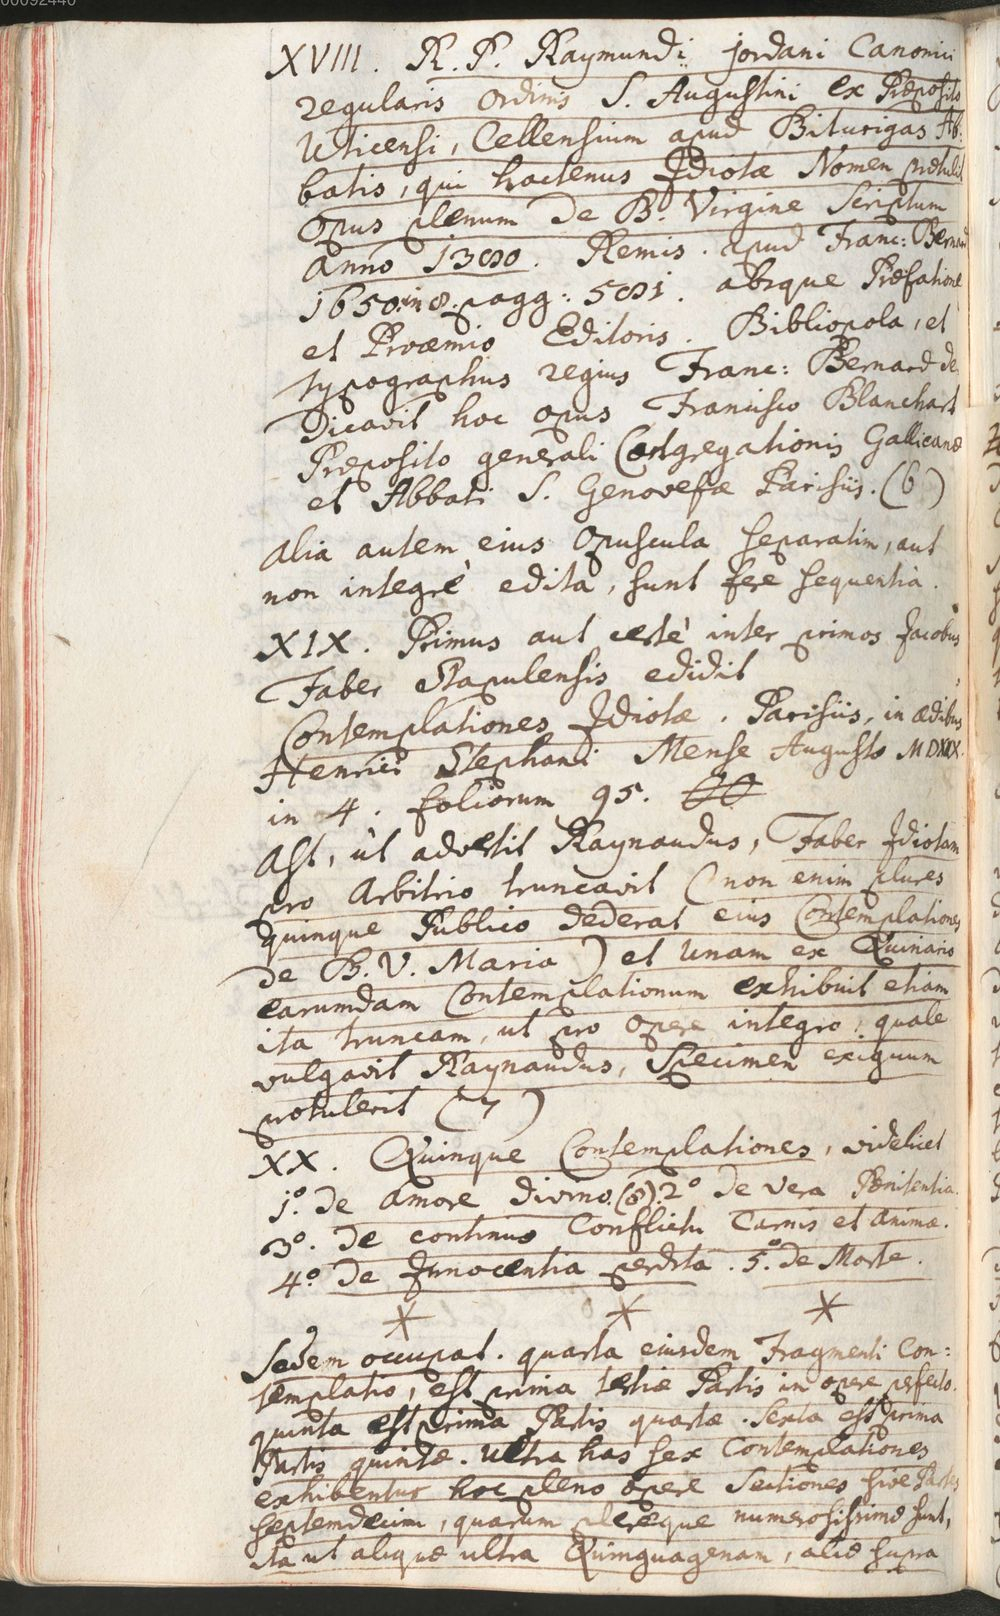 00092440
XVIII. R. P. Raymundi jordani Canonici
regularis ordinis S. Augustini ex Præposito
Uticensi, Cellensium apud Bituriges Ab:
batis, qui hactenus Idiotæ Nomen prætulit
opus plenum de B. Virgine scriptum
anno 1380. Remis. apud Franc: Bernard
1650. in 8. pagg: 581. absque Præfatione
et Proæmio Editoris. Bibliopola, et
typographus regius Franc: Bernard de
dicavit hoc opus Francisco Blanchart
Præposito generali Congregationis Gallicanæ
et Abbati S. Genovefæ Parisiis. (6)
alia autem eius Opuscula separatim, aut
non integrè edita, sunt fere sequentia.
XIX. Primus aut certè inter primos Jacobus
Faber Stapulensis edidit
Contemplationes Idiotæ. Parisiis, in ædibus
Henrici Stephani Mense Augusto MDXIX.
in 4. foliorum 95.
Ast, ùt advertit Raynaudus, Faber Idiotam
pro Arbitrio truncavit (non enim plures
quinque Publico dederat eius Contemplationes
de B. V. Maria) et Unam ex Quinario
earumdam Contemplationum exhibuit etiam
ita truncam, ut pro opere integro, quale
vulgavit Raynaudus, Specimen exiguum
protulerit (7)
XX. Quinque Contemplationes, videlicet
1.º de amore divino. (8). 2º de vera Pænitentia.
3º. de continuo Conflictu Carnis et animæ.
4º. de Innocentia perdita. 5.º de Morte.
* * *
Sedem occupat. quarta eiusdem Fragmenti Con:
templatio, est prima tertiæ Partis in opere perfecto.
quinta est prima Partis quartæ. Sexta est prima
Partis quintæ. Ultra has sex Contemplationes
exhibentur hoc pleno opere Sectiones sive Partes
septemdecim, quarum pleræque numerosissimæ sunt,
ita ut aliquæ ultra Quinquagenam, aliæ supra